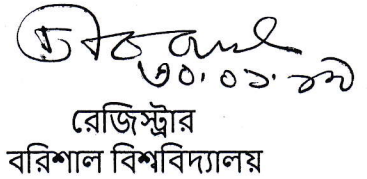 ৩০.০১.
রেজিস্ট্রার
বরিশাল বিশ্ববিদ্যালয়